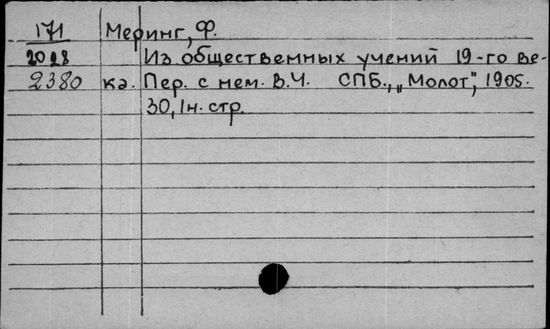 171 Меринг, Ф.
2028 Из общественных учений 19-го ве-
2380 ка. Пер. с нем. В.Ч. СПБ., „Молот", 1905.
30, 1н. стр.